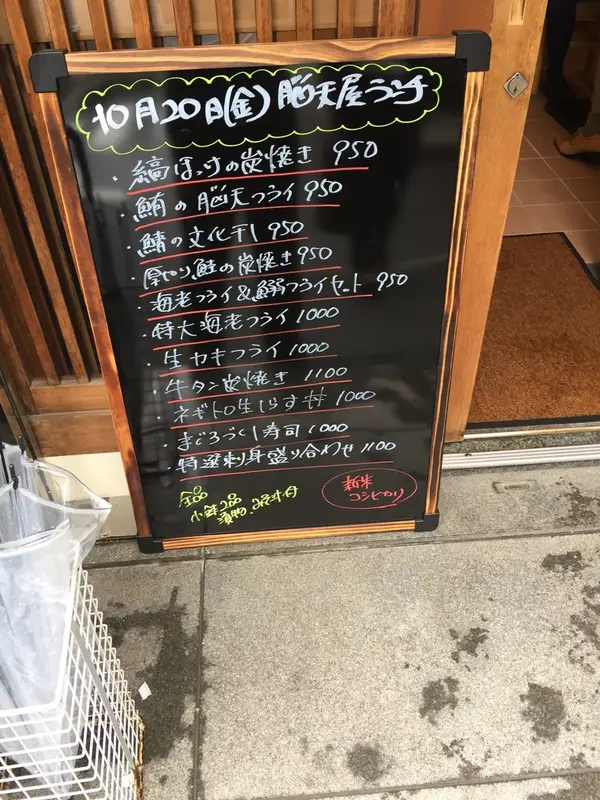 10月20日(金)脳天屋ランチ
・縞ほっけの炭焼き 950
・鮪の脳天フライ 950
・鯖の文化干し 950
・銀ヒリ鮭の炭焼き 950
・海老フライ&鰯フライセット 950
・特大海老フライ 1000
・生カキフライ 1000
・牛タン炭焼き 1100
・ネギトロ生しらす丼 1000
・まぐろづくし寿司 1000
・特選刺身盛り合わせ 1100
全品
小鉢2品
漬物、みそ汁付
新米
コシヒカリ